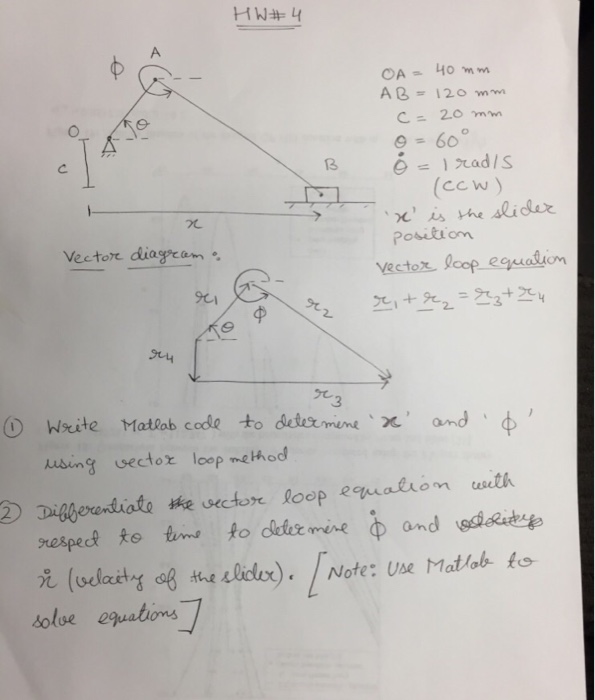 HW#4
φ A
O θ
C
B
x
OA = 40 mm
AB = 120 mm
C = 20 mm
θ = 60°
θ̇ = 1 rad/s
(CCW)
'x' is the slider
position
Vector diagram:
Vector loop equation
r1 + r2 = r3 + r4
r1 θ φ r2
r4
r3
① Write Matlab code to determine 'x' and 'φ'
using vector loop method.
② Differentiate the vector loop equation with
respect to time to determine φ̇ and
ẋ (velocity of the slider). [Note: Use Matlab to
solve equations]